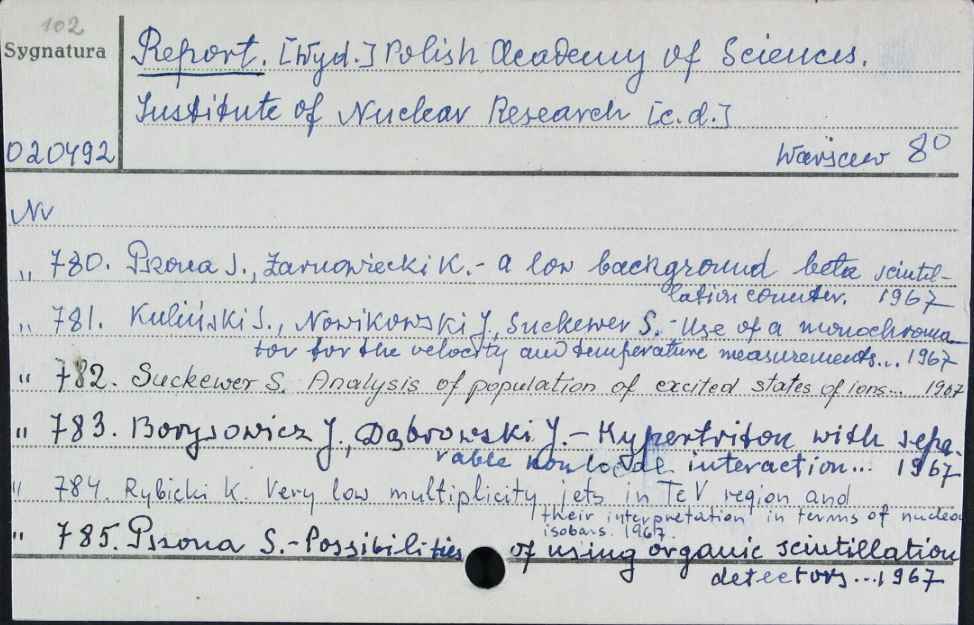 102
Sygnatura
Report. [Wyd.] Polish Academy of Sciences.
Institute of Nuclear Research [c.d.]
020492
Warszaw 8°
Nr
" 780. Pszona S., Żarnowiecki K.- A low background beta scintil-
lation counter. 1967
" 781. Kuliński S., Nowikowski J., Suckewer S.- Use of a monochroma-
tor for the velocity and temperature measurements... 1967
" 782. Suckewer S. Analysis of population of excited states of ions... 1967
" 783. Borysowicz J., Dąbrowski J.- Hypertriton with sepa-
rable nonlocal interaction... 1967
" 784. Rybicki K. Very low multiplicity jets in TeV region and
their interpretation in terms of nucleo
isobars. 1967.
" 785. Pszona S.- Possibilities of using organic scintillation
detectors... 1967